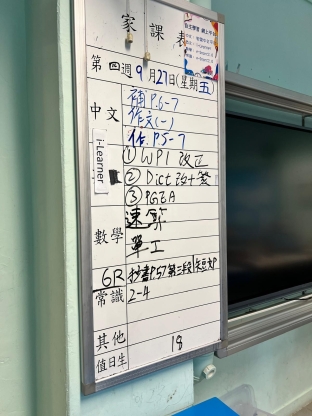 家課表
第四週9月27日(星期五)
中文
補P.6-7
作文(一)
作.P.5-7
i-Learner
① WP1 改正
② Dict 改+簽
③ PG2A
數學
速算
單工
6R
抄書P.57第三段
常識
2-4
其他
值日生
18